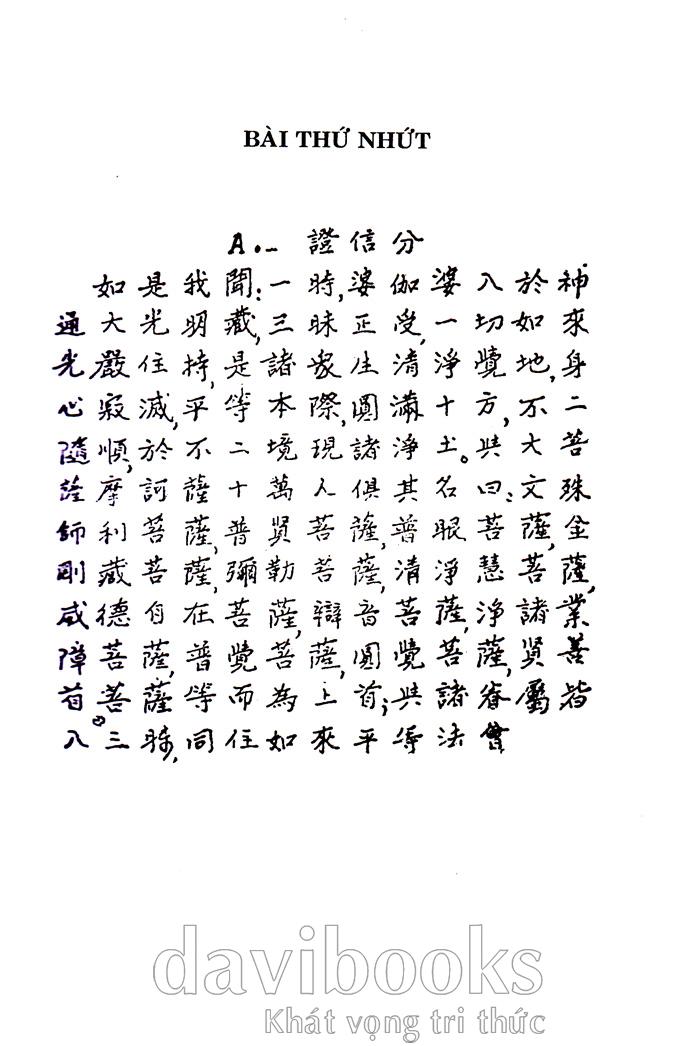 BÀI THỨ NHỨT
A._ 證信分
如是我聞:一時,婆伽婆入於神
通大光明藏,三昧正受,一切如來
光嚴住持,是諸眾生清淨覺地,身
心寂滅,平等本際,圓滿十方,不二
隨順,於不二境現諸淨土。與大菩
薩摩訶薩十萬人俱其名曰:文殊
師利菩薩,普賢菩薩,普眼菩薩,金
剛藏菩薩,彌勒菩薩,清淨慧菩薩,
威德自在菩薩,辯音菩薩,淨諸業
障菩薩,普覺菩薩,圓覺菩薩,賢善
首菩薩等而為上首;與諸眷屬皆
入三昧,同住如來平等法會。
davibooks
Khát vọng tri thức